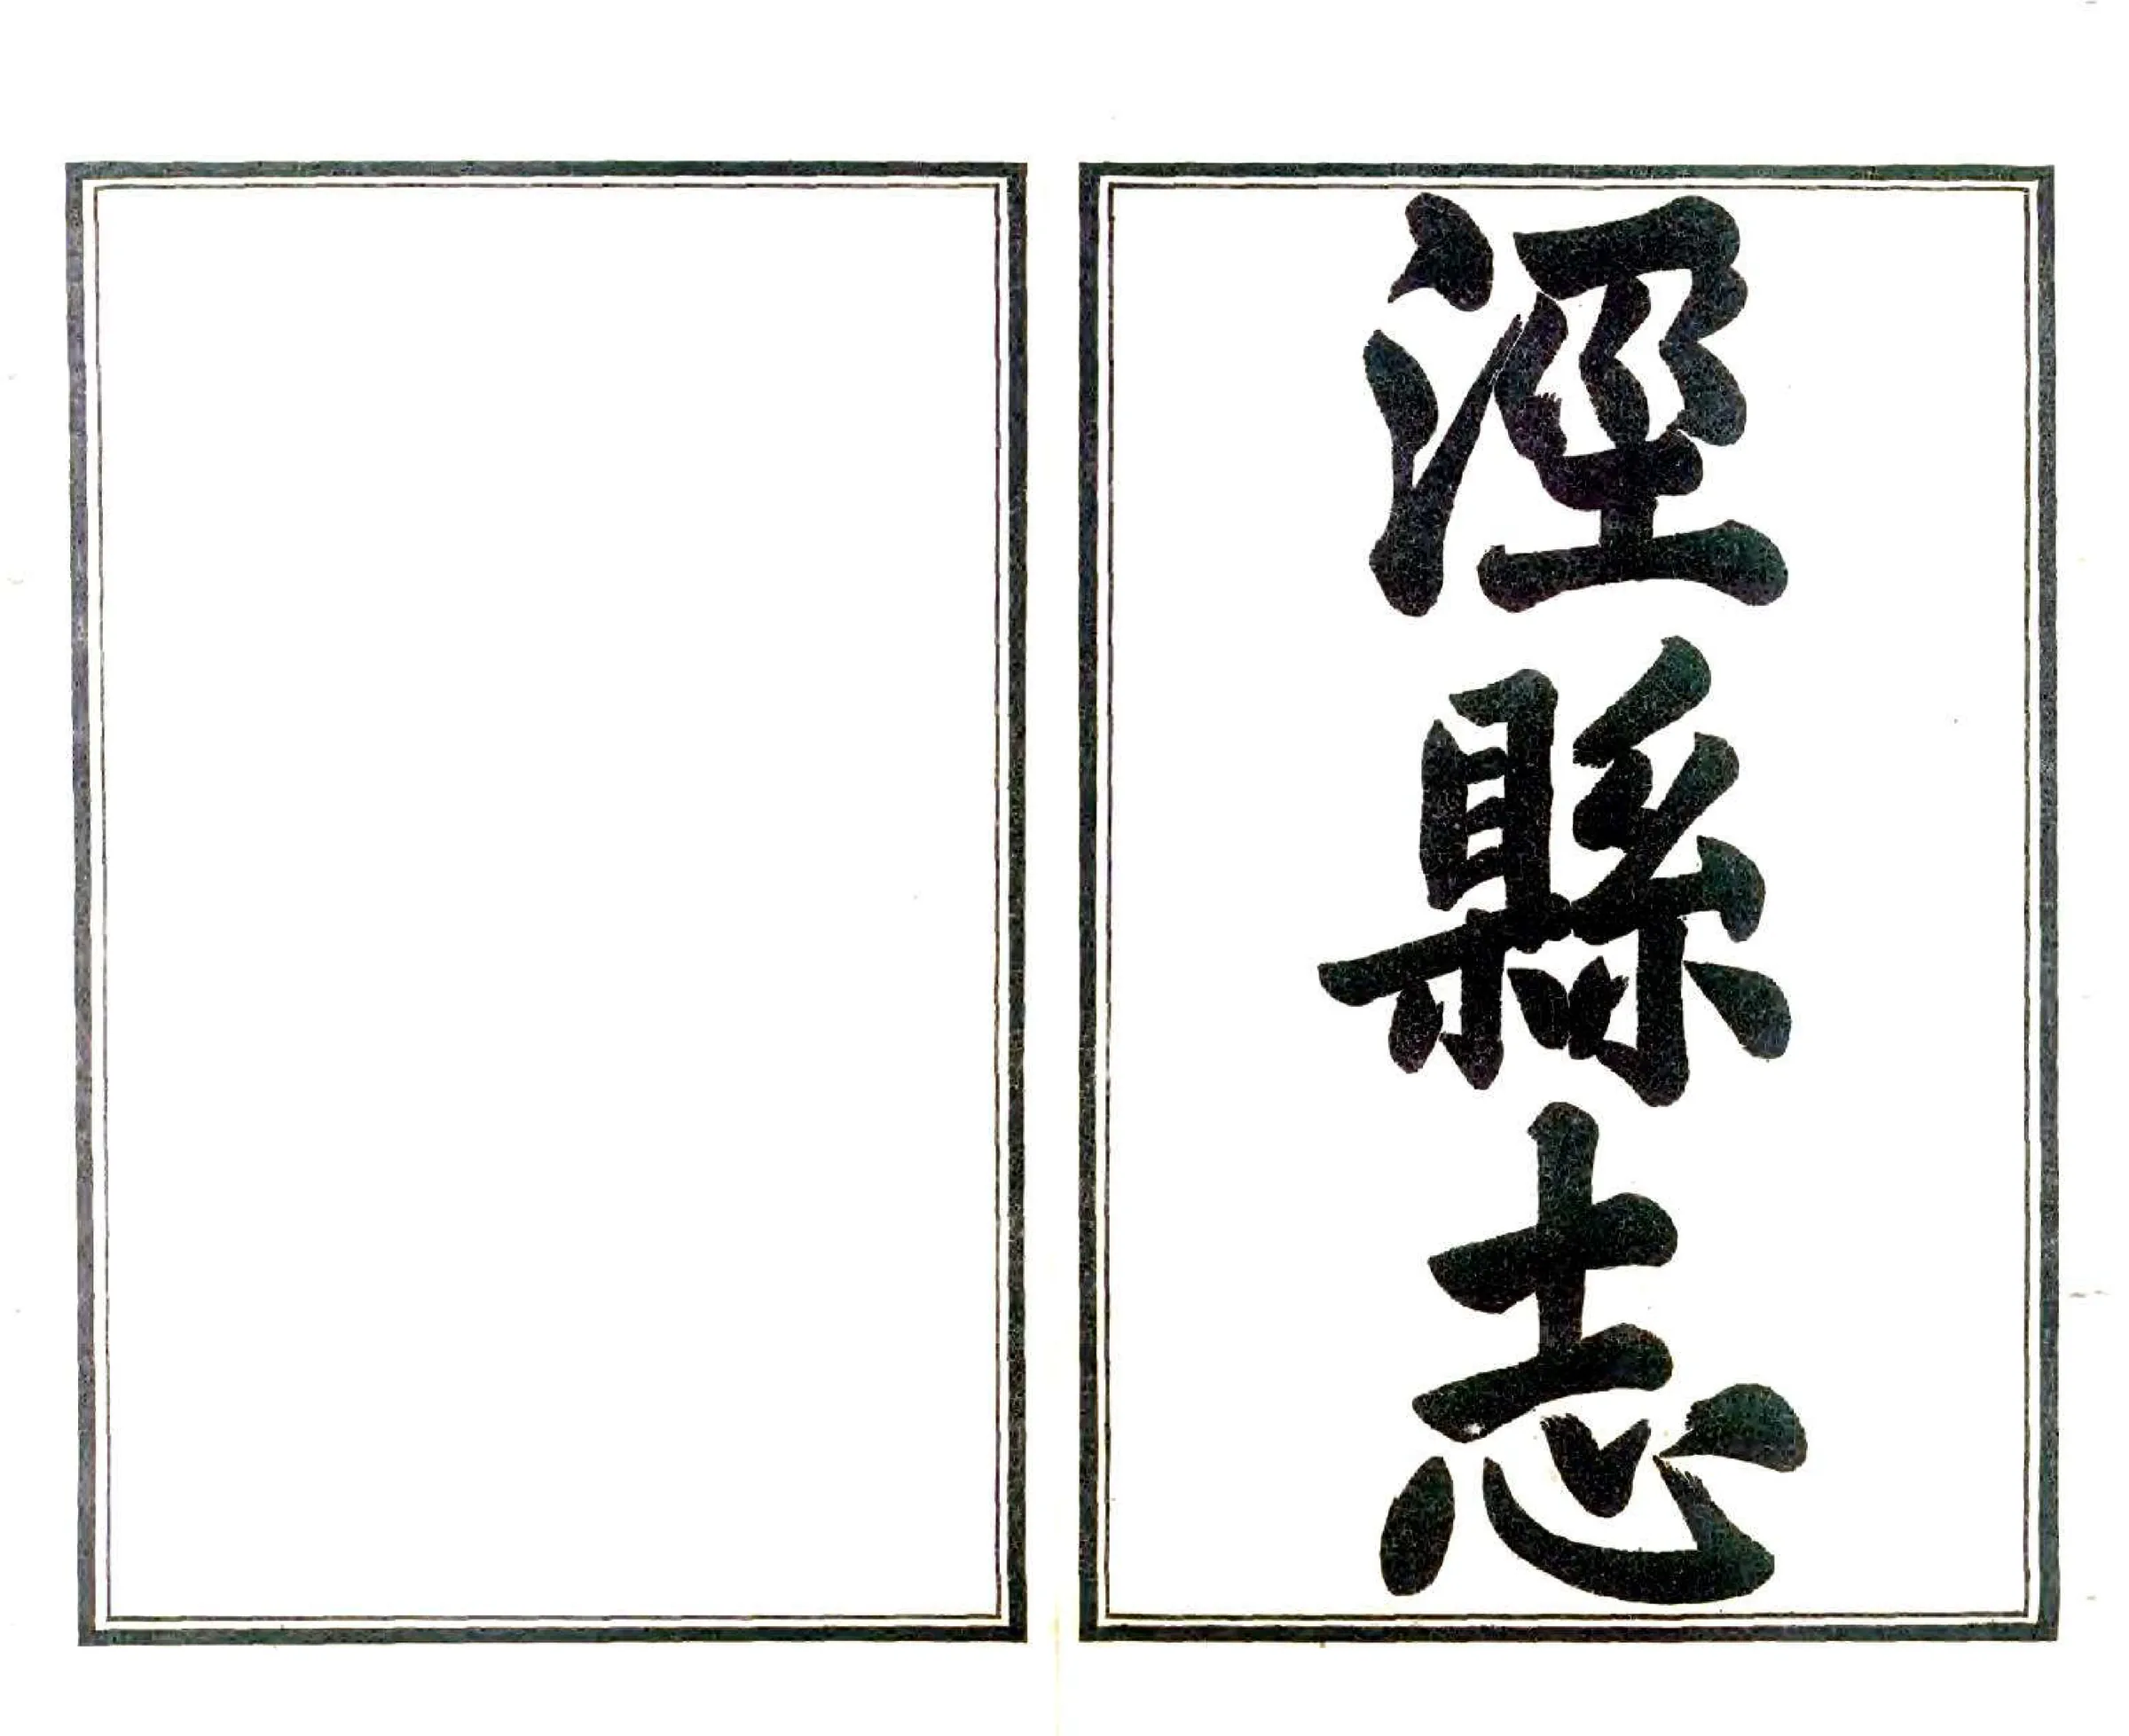 涇縣志